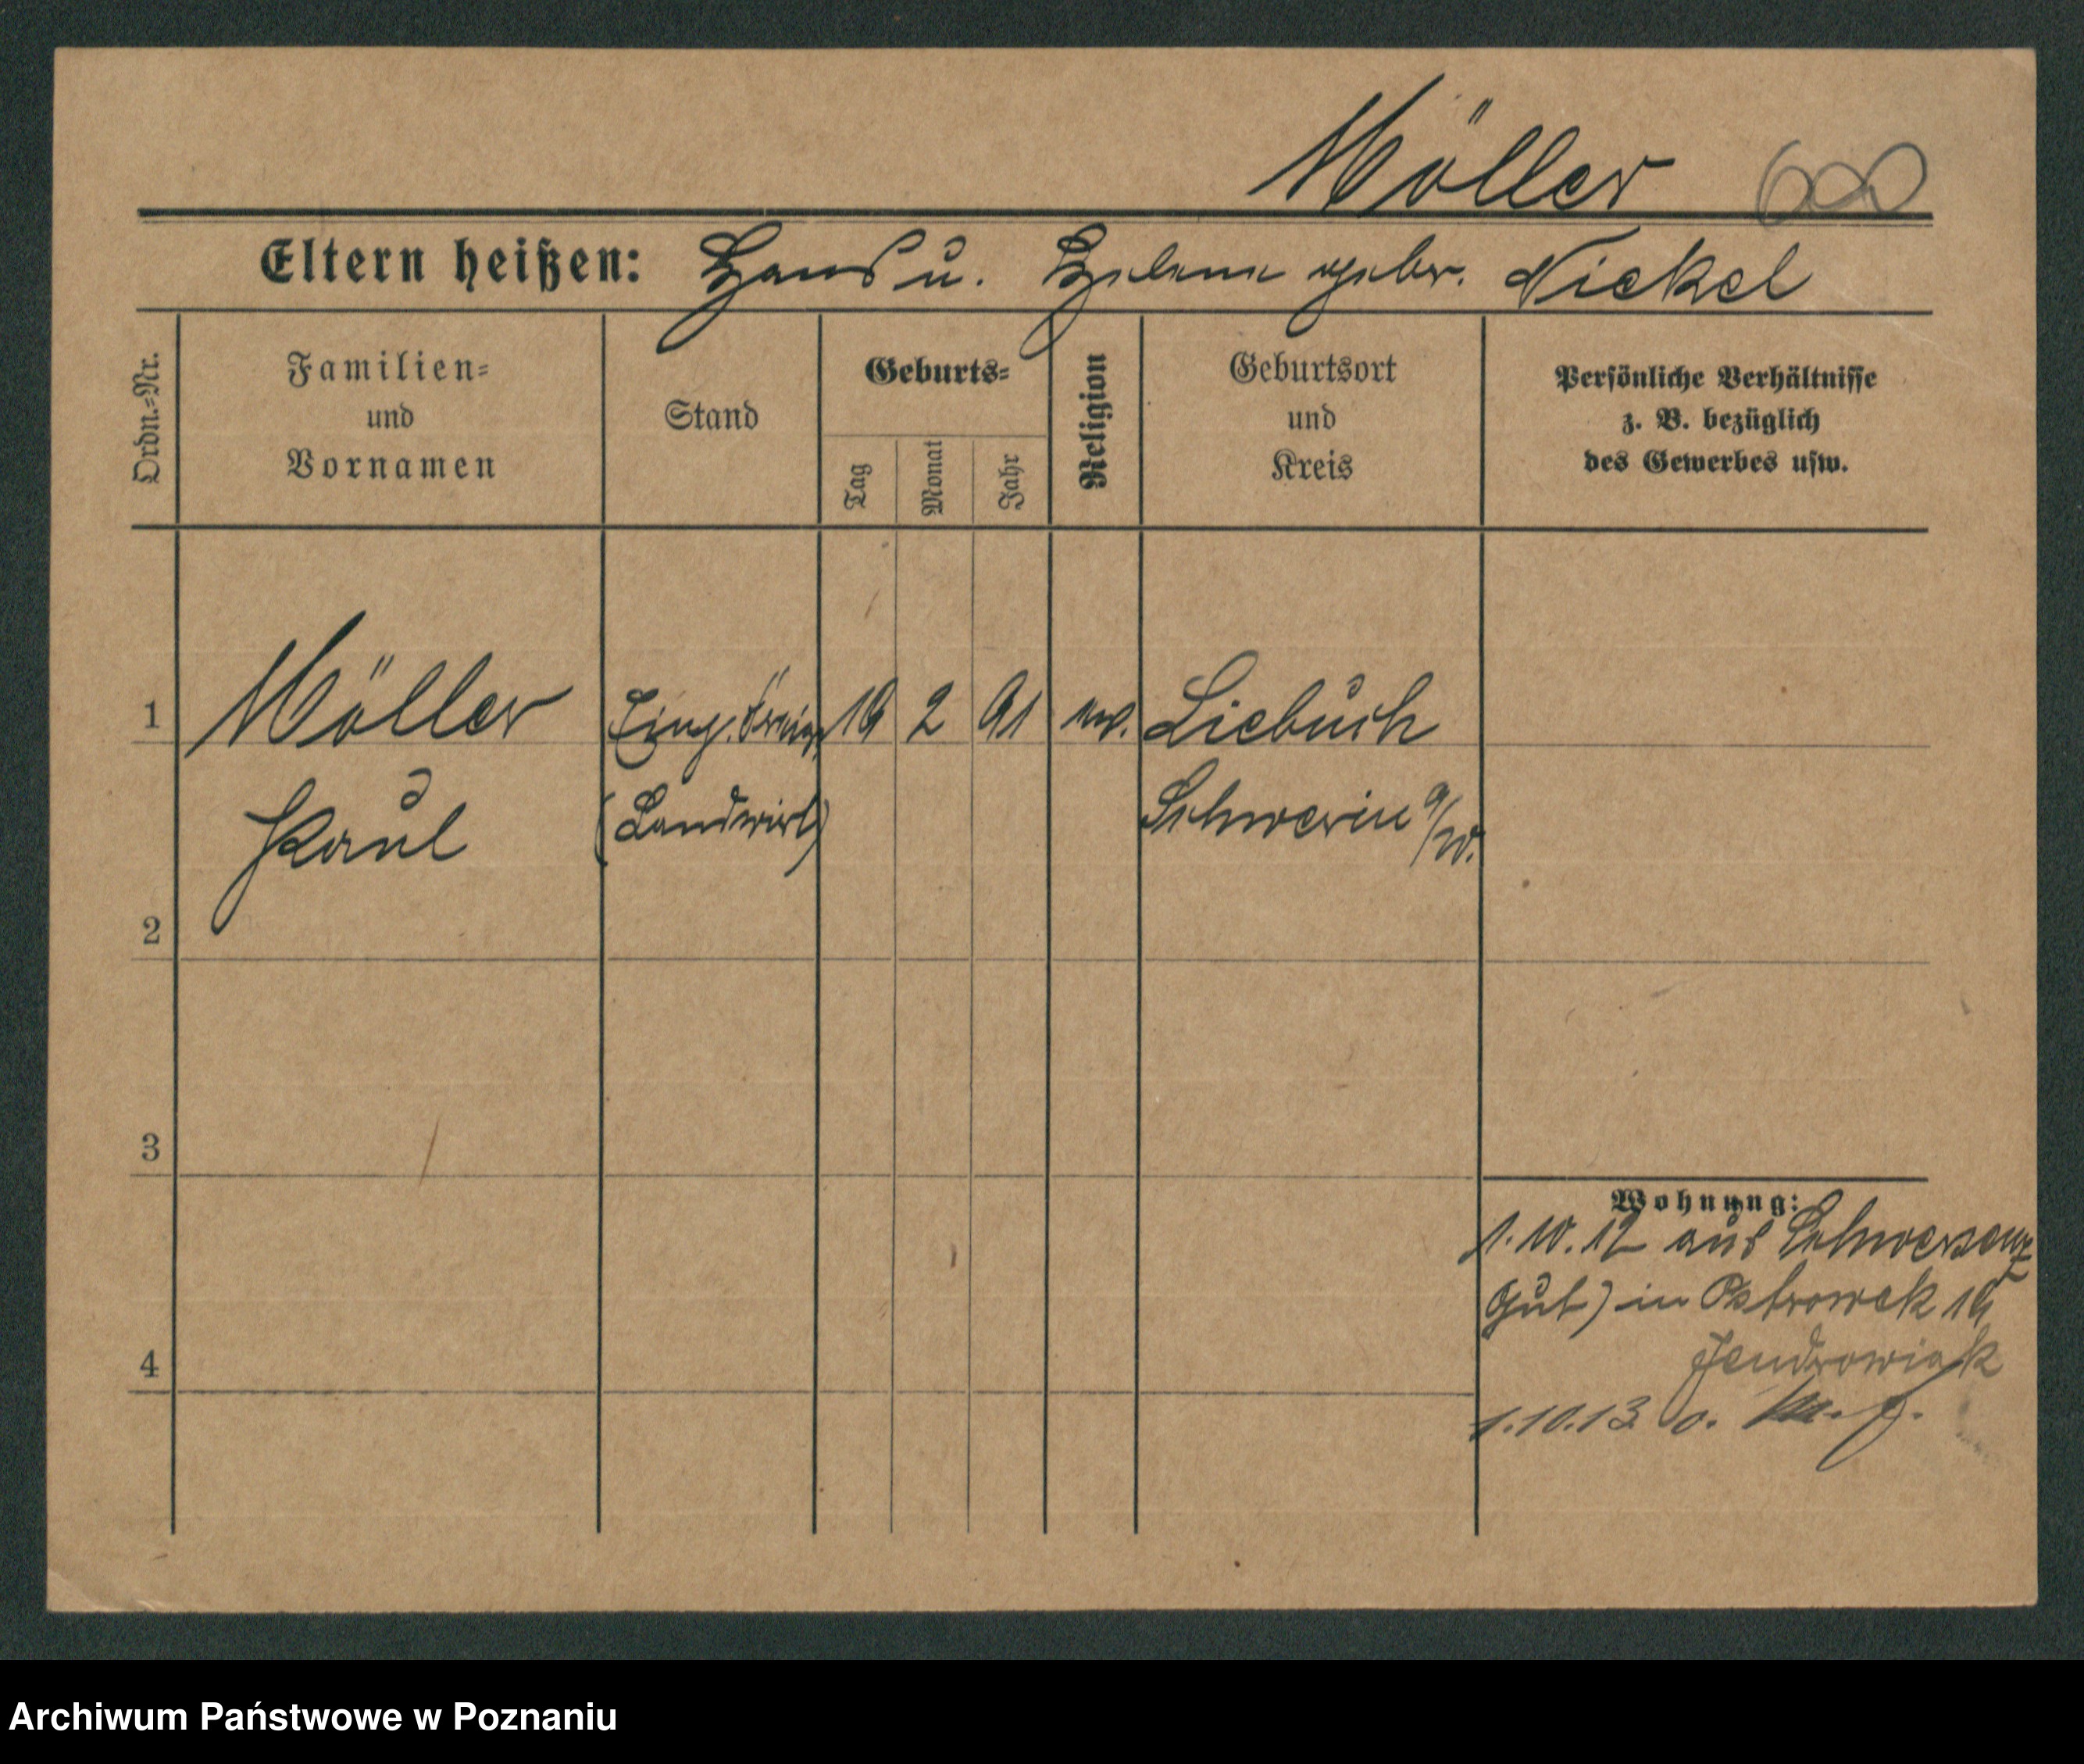 Möller
Eltern heißen: Hans u. Helene gebr. Nickel
Ordn.-Nr.
Familien-
und
Vornamen
Stand
Geburts-
Tag
Monat
Jahr
Religion
Geburtsort
und
Kreis
Persönliche Verhältnisse
z. B. bezüglich
des Gewerbes usw.
1 Möller 2 91 ev. Liebuch
Paul (Landwirt) Schwerin a/W.
2
3
4
Wohnung:
1.10.12 aus Schwersenz
Gut) in Ostrowek
Jendrowiak
1.10.13
Archiwum Państwowe w Poznaniu